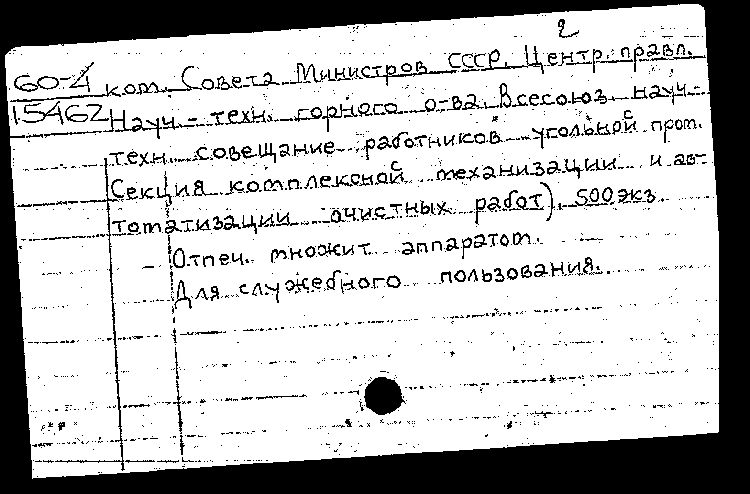 2
60-4 ком. Совета Министров СССР. Центр. правл.
15462 Науч.-техн. горного о-ва. Всесоюз. науч.-
техн. совещание работников угольной пром.
Секция комплексной механизации и ав-
томатизации очистных работ). 500 экз.
Отпеч. множит аппаратом.
Для служебного пользования.